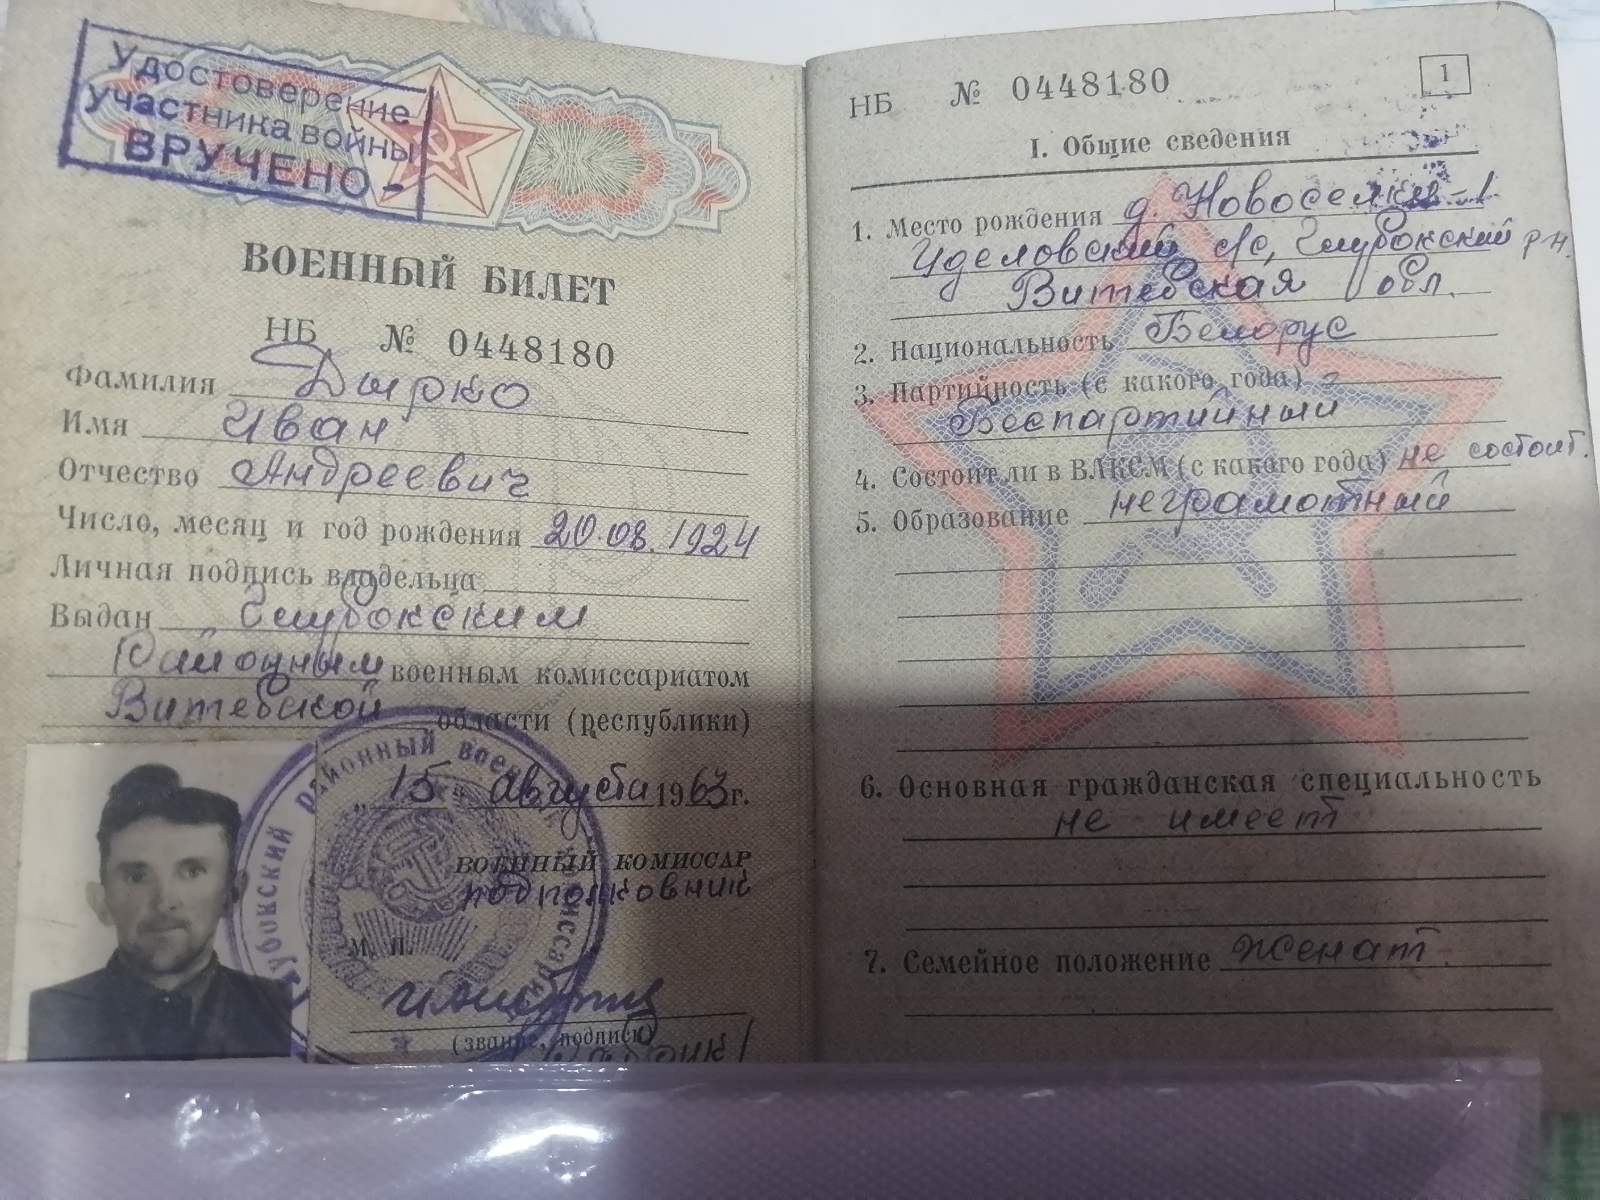 Удостоверение
участника войны
ВРУЧЕНО -
ВОЕННЫЙ БИЛЕТ
НБ № 0448180
Фамилия Дырко
Имя Иван
Отчество Андреевич
Число, месяц и год рождения 20.08.1924
Личная подпись владельца
Выдан Глубокским
Районным военным комиссариатом
Витебской области (республики)
„15“ августа 1963 г.
ВОЕННЫЙ КОМИССАР
подполковник
М. П.
(звание, подпись)
НБ № 0448180
1
I. Общие сведения
1. Место рождения д. Новоселки-1
Уделовский с/с, Глубокский р-н.
Витебская обл.
2. Национальность Белорус
3. Партийность (с какого года)
Беспартийный
4. Состоит ли в ВЛКСМ (с какого года) не состоит.
5. Образование неграмотный
6. Основная гражданская специальность
не имеет
7. Семейное положение женат.